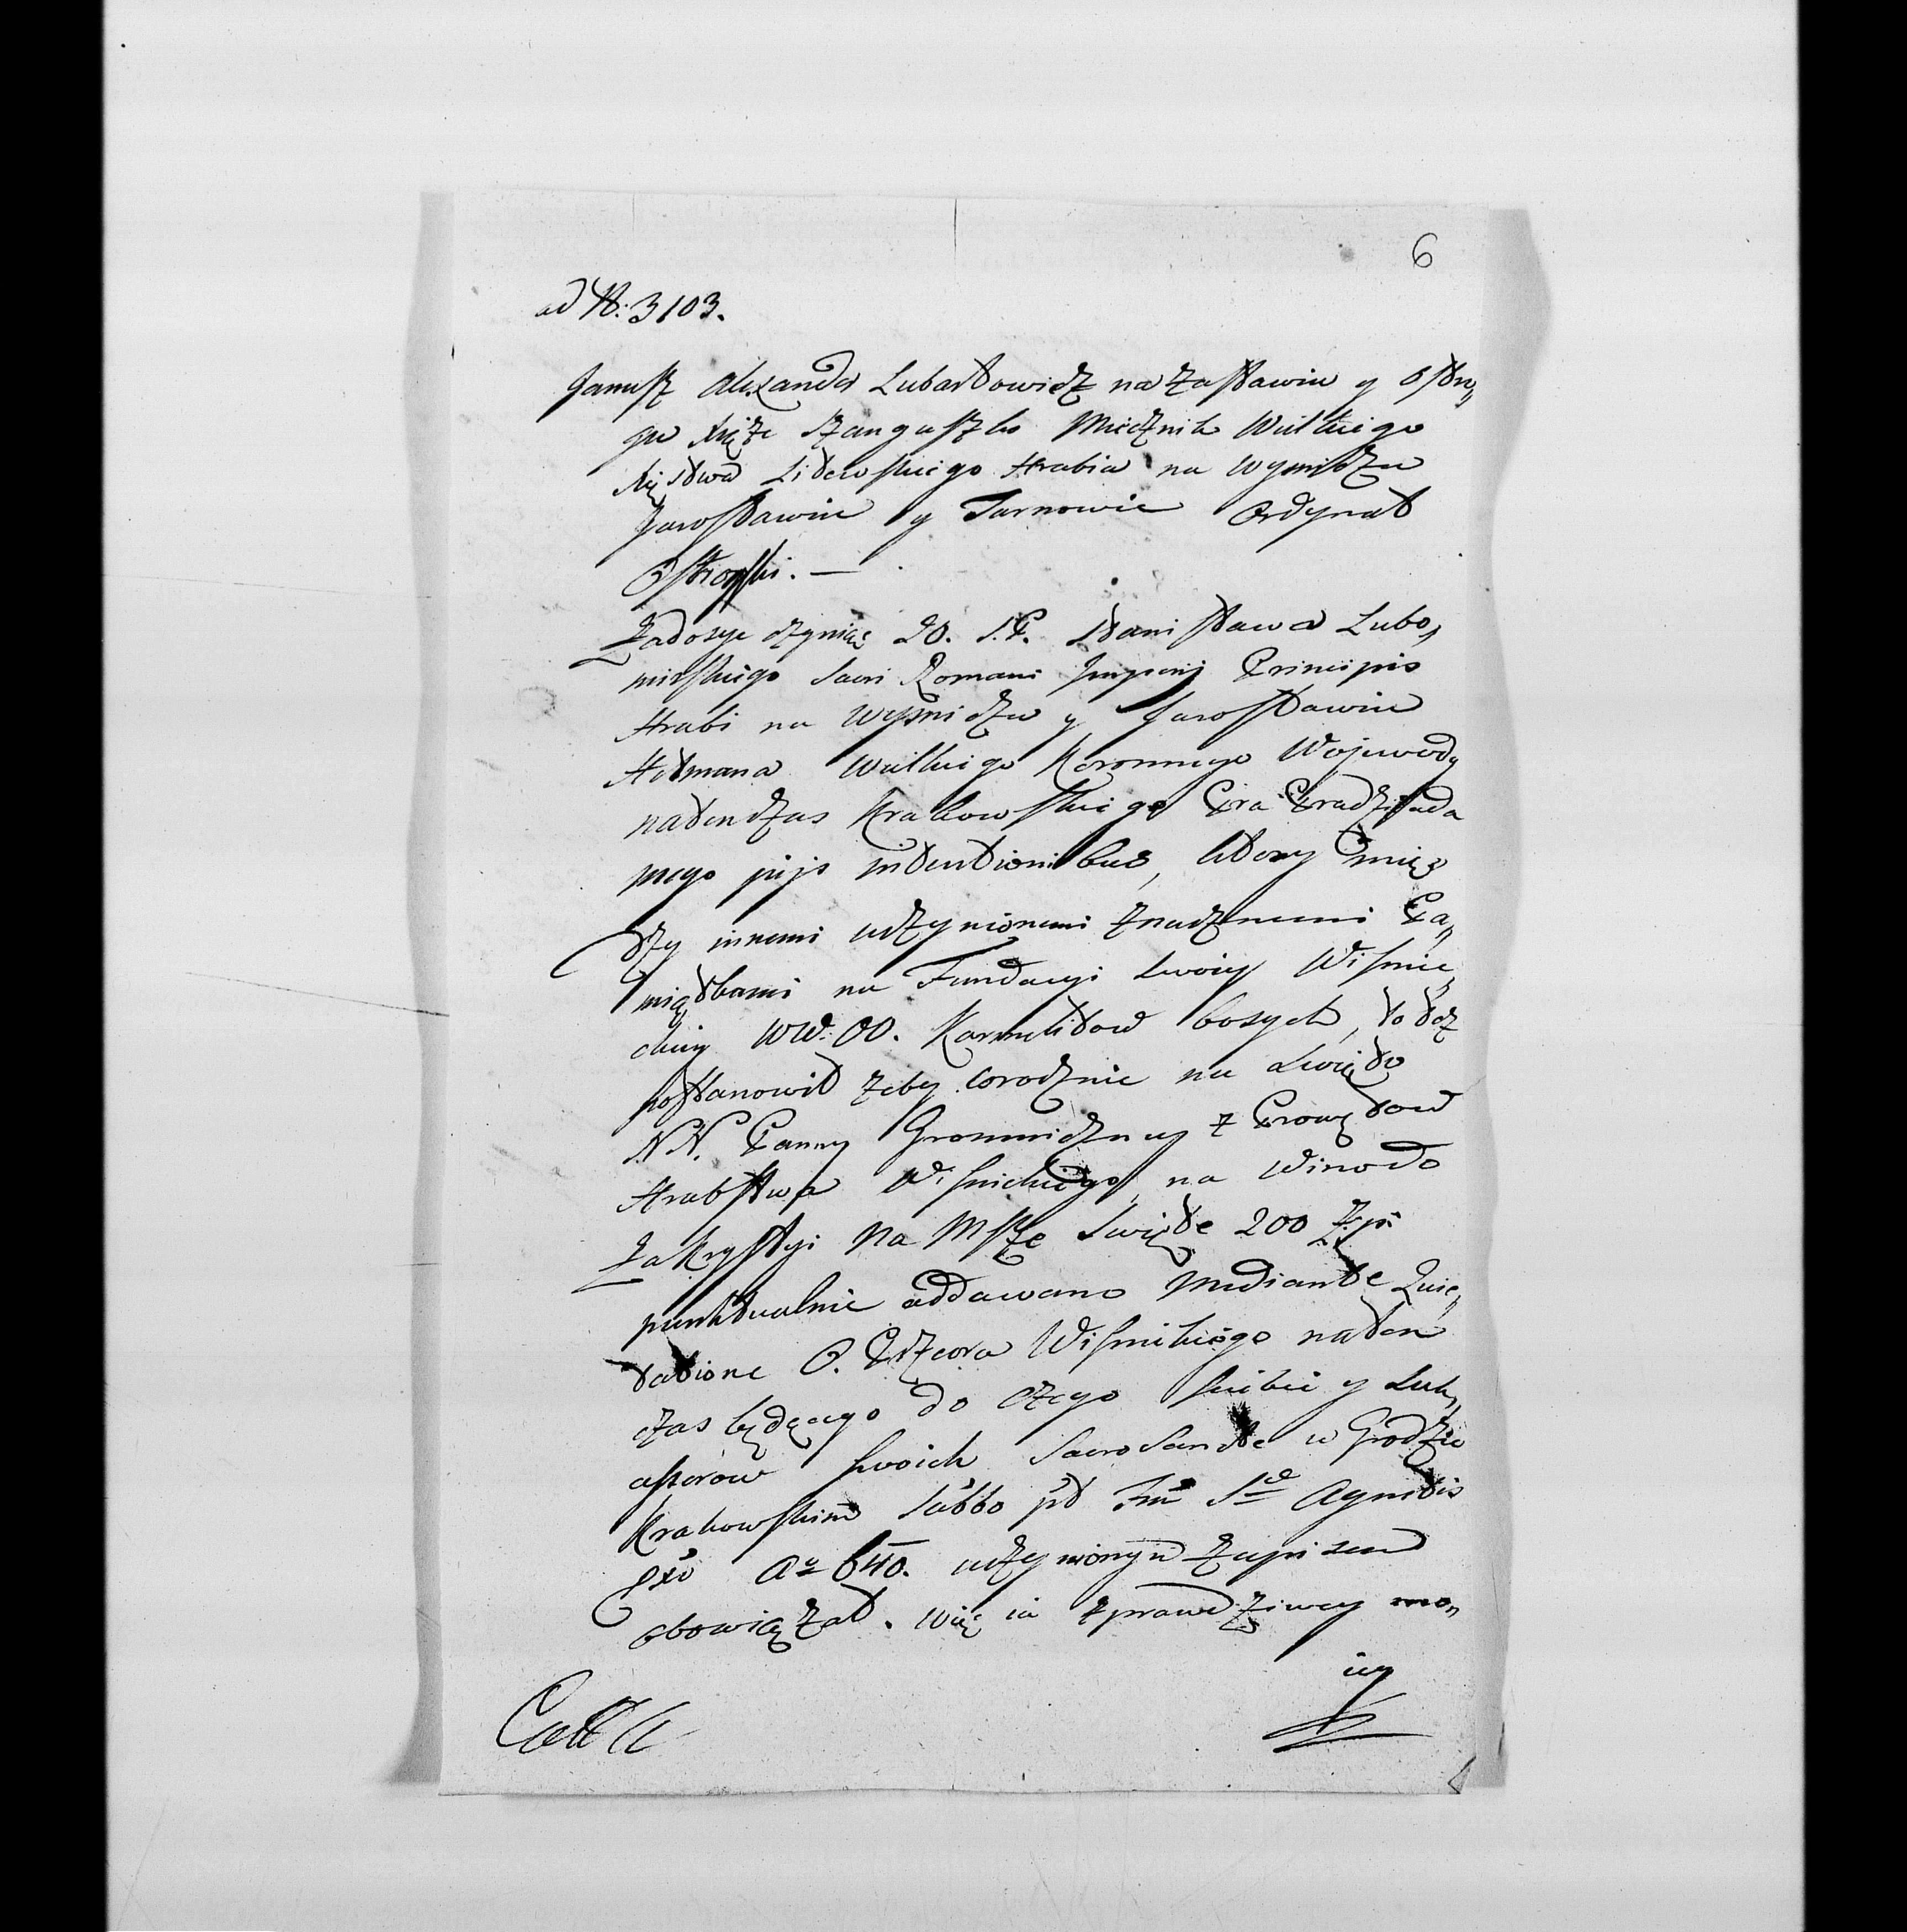 6
ad N: 3103.
Janusz Alexander Lubartowicz na Zasławiu y Ostro„
gu Xiąże Sanguszko Miecznik Wielkiego
Xięstwa Litewskiego Hrabia na Wiśniczu
Jarosławiu y Tarnowie Ordynat
Ostrogski. —
Zadosyc czyniąc JO. S. P. Stanisława Lubo„
mirskiego Sacri Romani Imperij Principis
Hrabi na Wiśniczu y Jarosławiu
Hetmana Wielkiego Koronnego Wojewody
natenczas Krakowskiego Pra Pradziada
mego pijs intentionibus, ktory mię„
dzy innemi uczynionemi znacznemi Pa„
miątkami na Fundacyi Swoiey Wiśnic„
kiey WW. OO. Karmelitow bosych, to też
postanowił żeby corocznie na Swięto
N. N. Panny Gromniczney z Prowętow
Hrabstwa Wiśnickiego, na Wino do
Zakrystyi na Msze Swięte 200 Złp:
punktualnie oddawano mediante Quie„
tatione O. Przeora Wiśnickiego naten
czas będącego do czego siebie y Suk„
cessorow swoich Sacrosancte w Grodzie
Krakowskim Sabbo pt Fm Stæ Agnetis
A° 640. uczynionym Zapisem
obowiązał. Więc ia z prawdziwey mo„
iey